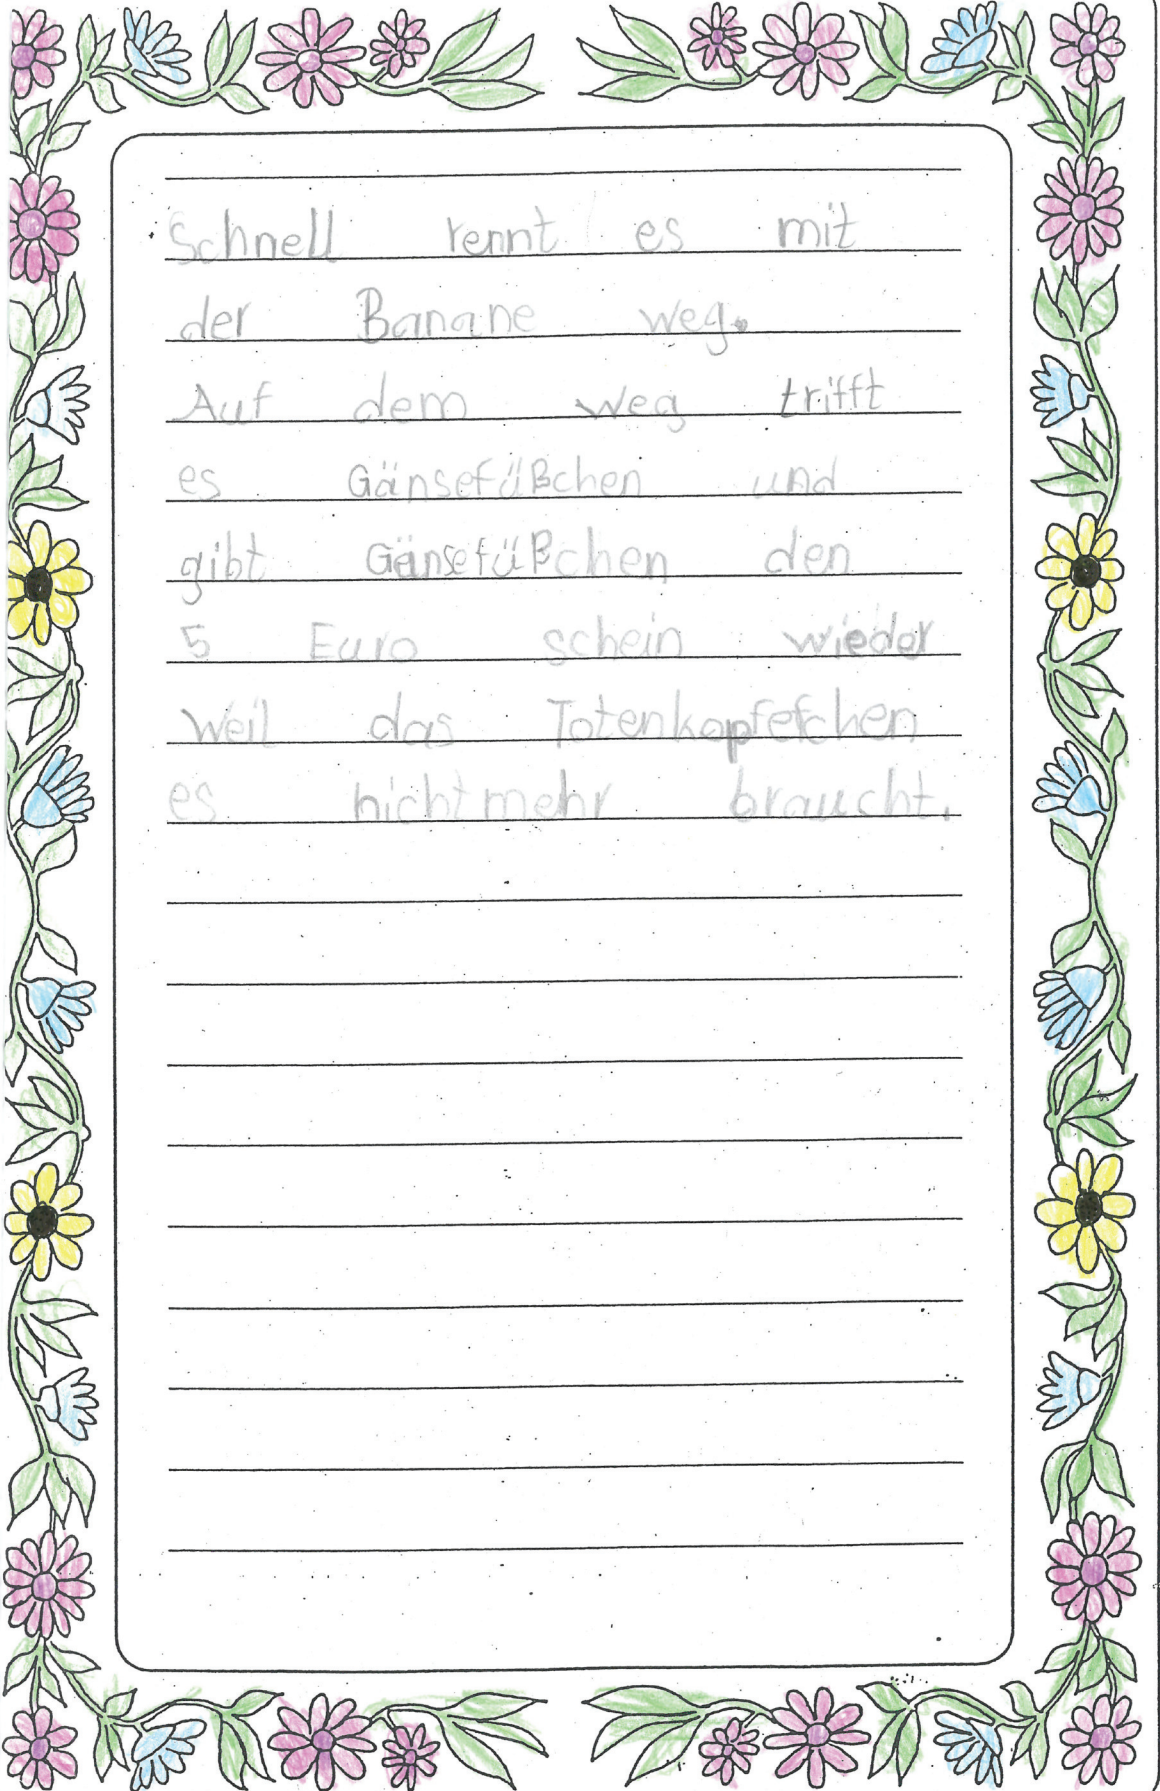 Schnell rennt es mit
der Banane weg.
Auf dem weg trifft
es Gänsefüßchen und
gibt Gänsefüßchen den
5 Euro schein wieder
weil das Totenkopfefchen
es nichtmehr braucht.